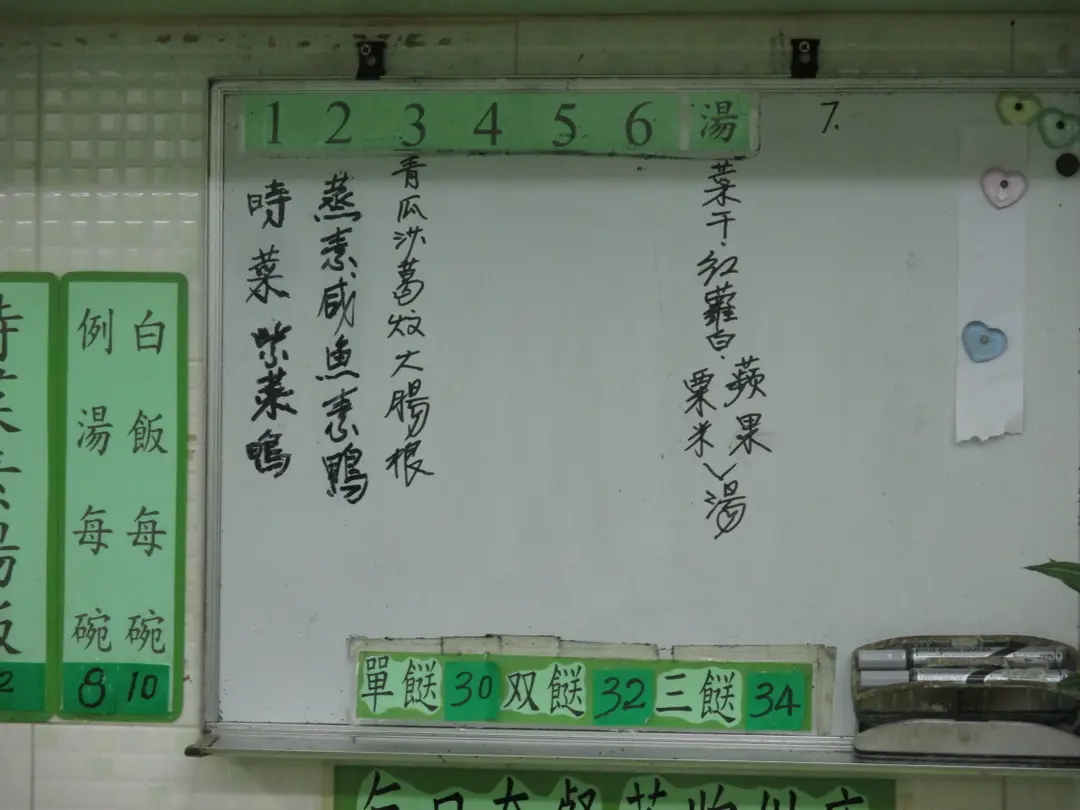 1 2 3 4 5 6 湯 7.
時菜紫菜鴨
蒸素咸魚素鴨
青瓜沙葛炆大腸根
菜干.紅蘿白.
粟米
蘋果
湯
白飯每碗 10
例湯每碗 8
單餸 30 双餸 32 三餸 34